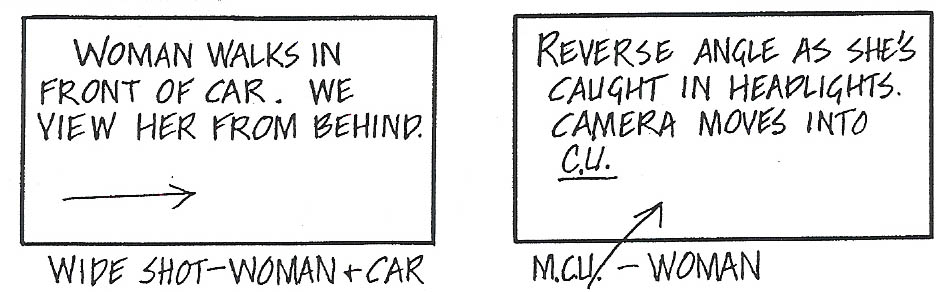 WOMAN WALKS IN
FRONT OF CAR. WE
VIEW HER FROM BEHIND.
WIDE SHOT-WOMAN + CAR
REVERSE ANGLE AS SHE'S
CAUGHT IN HEADLIGHTS.
CAMERA MOVES INTO
C.U.
M.C.U. - WOMAN